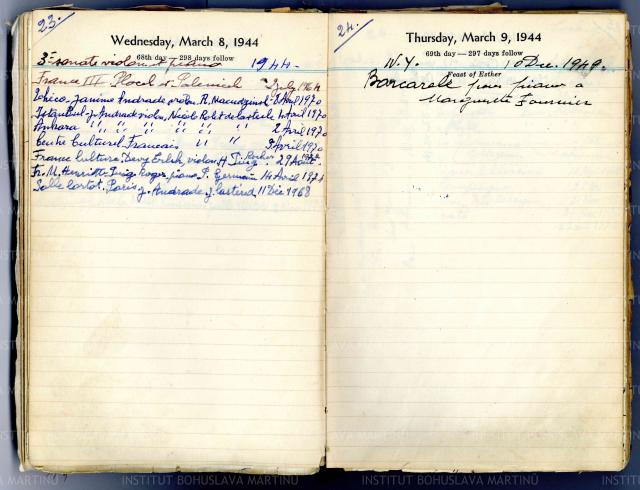 23.
Wednesday, March 8, 1944
68th day — 298 days follow
3e sonate violon et piano 1944.
France III Plocek v. Palenicek July 1964
Janine Andrade violon R. 1970
Istanbul J. Andrade violon, Nicole Rolet de Castele 1 Avril 1970
Ankara " " " " " " 2 Avril 1970
Centre Culturel Francais " " 3 Avril 1970
France Culture. Devy Erlih, violon. H. Puig Roger 29 Août
Fr. M. Henriette Puig Roger, piano P. Germain 14 Avril
Salle Cortot. Paris J. Andrade 11 Déc 1968
24.
Thursday, March 9, 1944
69th day — 297 days follow
N.Y. 10 Dec. 1949.
Feast of Esther
Barcarelle pour piano a
Marguerite Fournier
INSTITUT BOHUSLAVA MARTINŮ